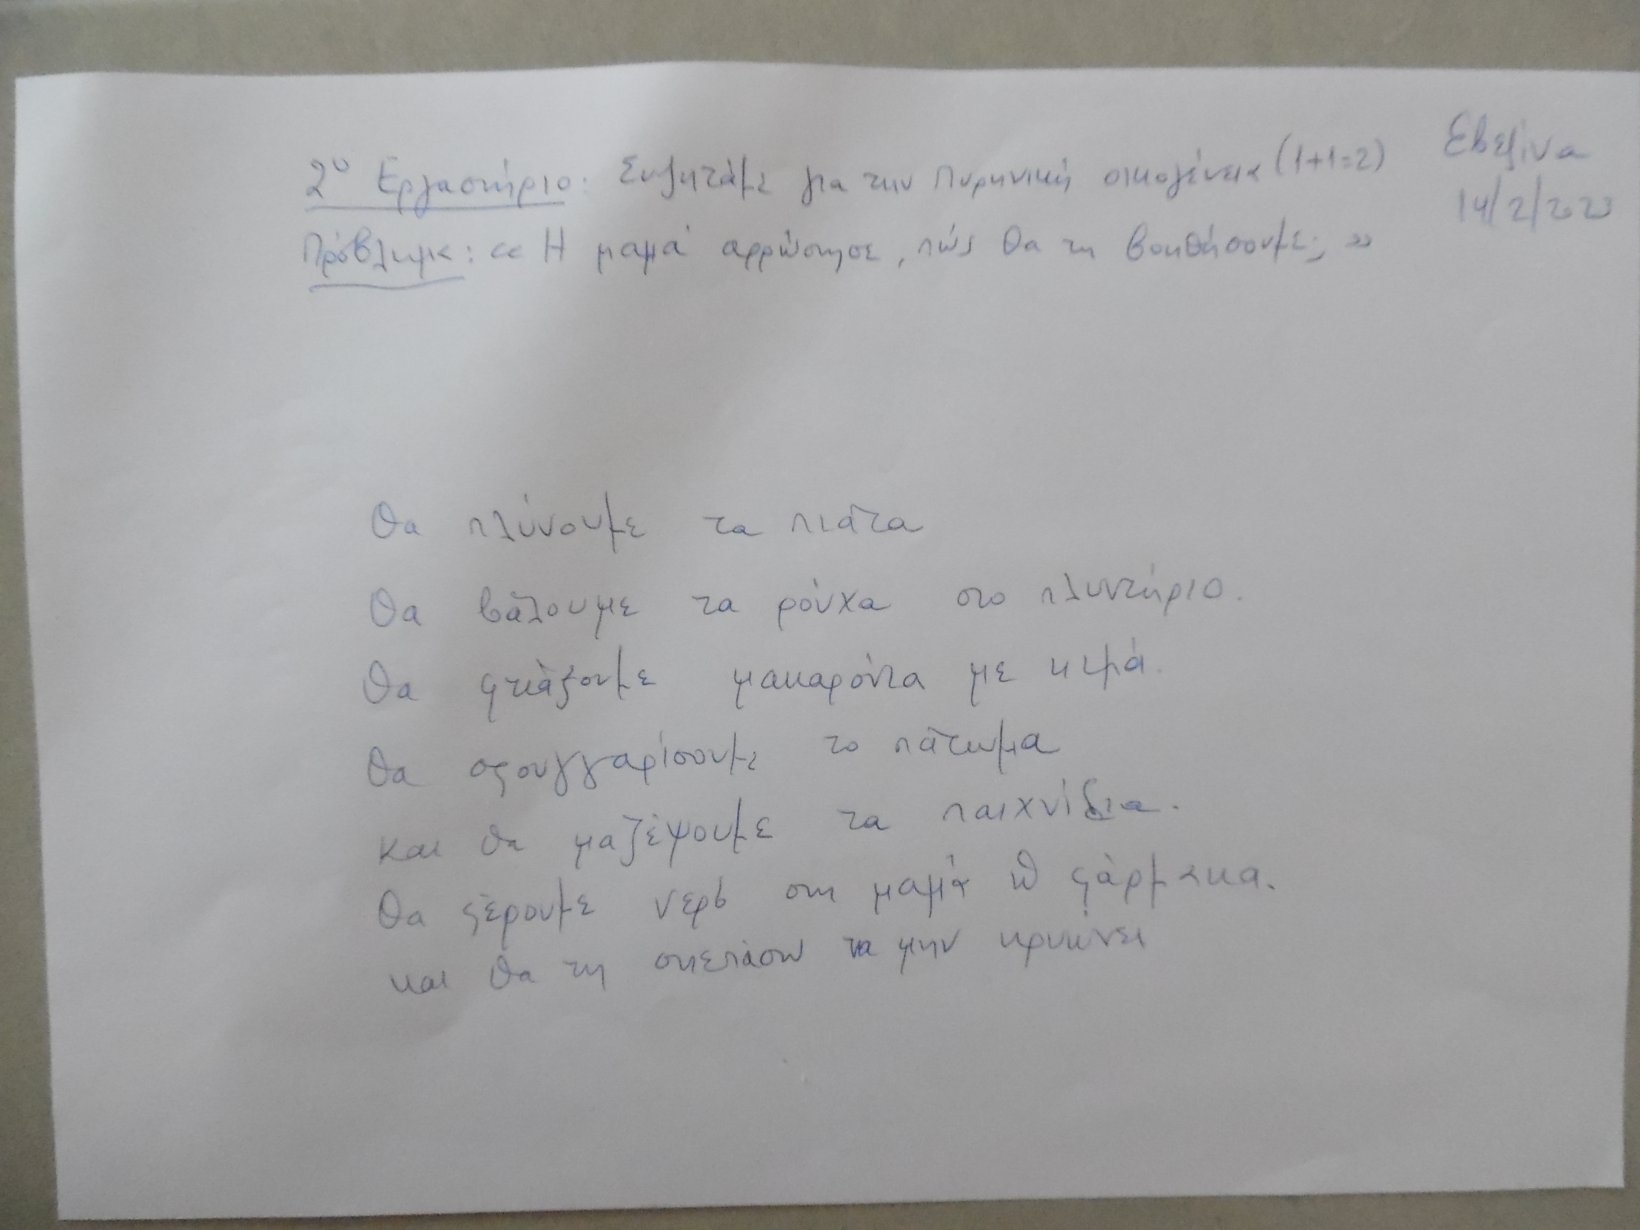 2ο Εργαστήριο: Συζητάμε για την πυρηνική οικογένεια (1+1=2)
Εβελίνα
14/2/2023
Πρόβλημα: «Η μαμά αρρώστησε, πώς θα τη βοηθήσουμε;»
Θα πλύνουμε τα πιάτα
Θα βάλουμε τα ρούχα στο πλυντήριο.
Θα φτιάξουμε μακαρόνια με κιμά.
Θα σφουγγαρίσουμε το πάτωμα
και θα μαζέψουμε τα παιχνίδια.
Θα φέρουμε νερό στη μαμά φάρμακα.
και θα τη σκεπάσω να μην κρυώνει